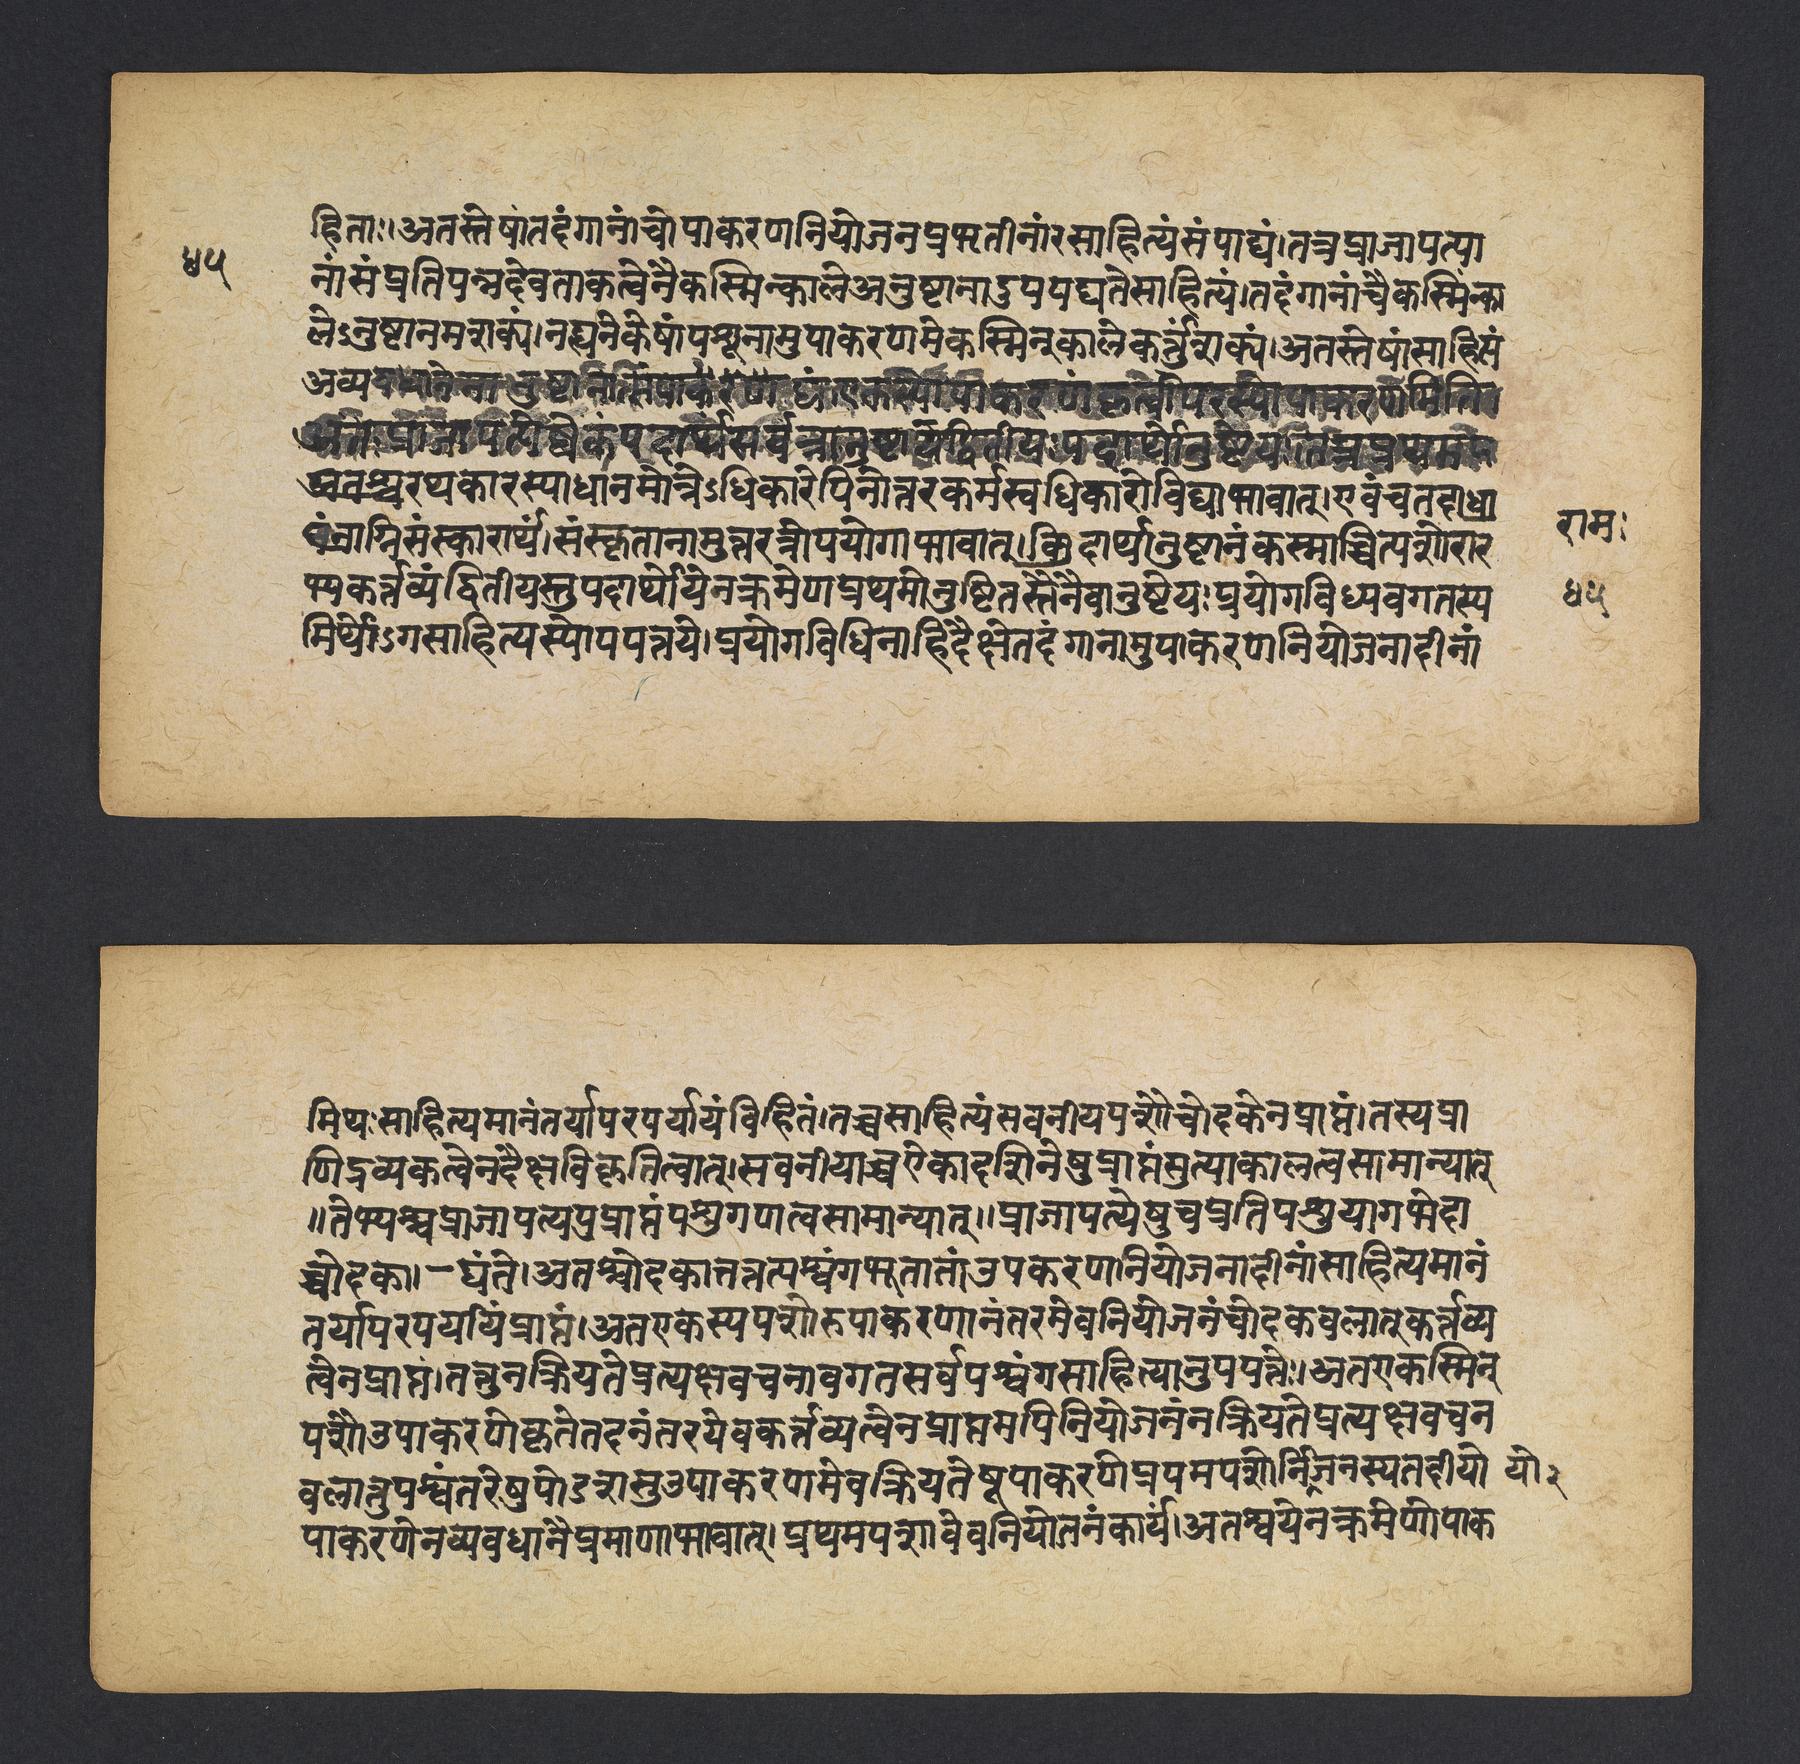 हिताः।अतस्तेषांतदंगानांचोपाकरणनियोजनप्रभृतीनांरसाहित्यंसंपाद्यं।तत्रप्राजापत्या
४५
नांसंप्रतिपन्नदेवताकत्वेनैकस्मिन्कालेअनुष्टानाउपपद्यतेसाहित्यं।तदंगानांचैकस्मिंन्का
लेऽनुष्टानमशक्यं।नह्यनेकेषांपश्यूनामुपाकरणमेकस्मिन्कालेकर्त्तुंशक्यं।अतस्तेषांसाहिसं
अव्यवधानेनानुष्टानात्संपाकरणांएकस्योपाकरणंकृत्वोपरस्योपाकरणमिति।
अतःप्राजापत्येष्वेकंपदार्थंसर्वत्रानुष्टायद्वितीयःपदार्थोनुष्टेयः।तत्रप्रथम
अतश्चरथकारस्याधानमात्रेऽधिकारेपिनोत्तरकर्मस्वधिकारोविद्याभावात्।एवंचतदाधा
नंनाग्निसंस्कारार्थं।संस्कृतानामुत्तरत्रोपयोगाभावात्। दार्थानुष्टानंकस्माच्चित्पशोरार
रामः
भ्यकर्त्तव्यंद्वितीयस्तुपदार्थोयेनक्रमेणप्रथमोनुष्टितस्तेनैवानुष्टेयःप्रयोगविध्यवगतस्य
४५
मिथोंऽगसाहित्यस्योपपत्तये।प्रयोगविधिनाहिदैक्षेतदंगानामुपाकरणनियोजनादीनां
मिथःसाहित्यमानंतर्यापरपर्यायंविहितं।तच्चसाहित्यंसवनीयपशौचोदकेनप्राप्तं।तस्यप्रा
णिद्रव्यकत्वेनदैक्षविकृतित्वात्।सवनीयाच्चऐकादशिनेषुप्राप्तंसुत्याकालत्वसामान्यात्
॥तेभ्यश्चप्राजापत्यपुप्राप्तंपश्रुगणत्वसामान्यात्॥प्राजापत्येषुचप्रतिपश्रुयागभेदा
च्चोदका।—द्यंते।अतश्चोदकात्तत्तत्पश्वंगभूतातांउपकरणनियोजनादीनांसाहित्यमानं
तर्यापरपर्यायंप्राप्तं।अतएकस्यपशोरुपाकरणानंतरमेवनियोजनंचोदकबलात्कर्त्तव्य
त्वेनप्राप्तं।तत्तुनक्रियतेप्रत्यक्षवचनावगतसर्वपश्वंगसाहित्यानुपपत्तेः।अतएकस्मिन्
पशौउपाकरणेकृतेतदनंतरयेवकर्त्तव्यत्वेनप्राप्तमपिनियोजनंनक्रियतेप्रत्यक्षवचन
बलात्तुपश्वंतरेषुषोऽशसुउपाकरणमेवक्रियतेषूपाकरणेप्रथमपशोर्निजनस्यतदीयो यो२
पाकरणेनव्यवधानेप्रमाणाभावात्। प्रथमपशावेवनियोतनंकार्यं।अतश्वयेनक्रमेणोपाक